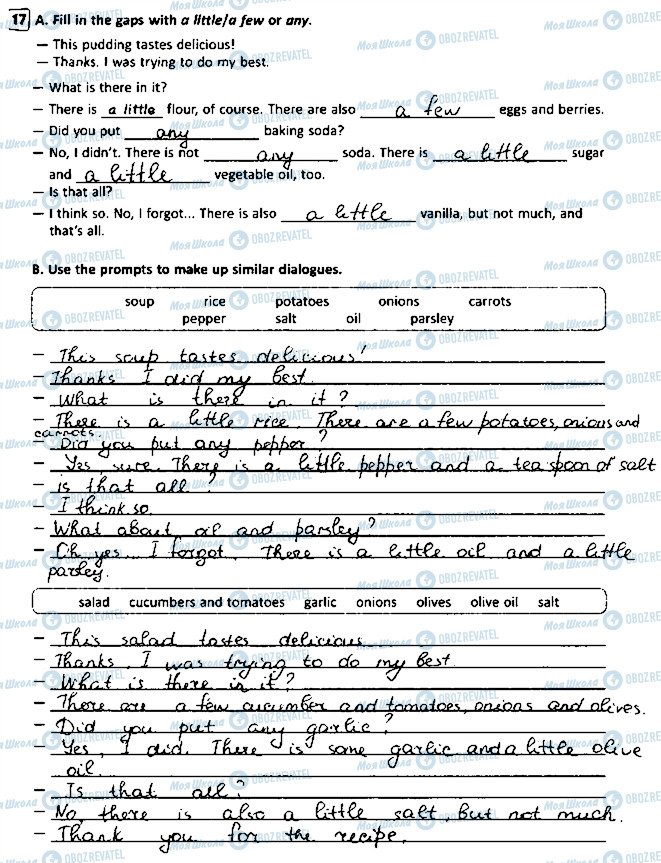 17 A. Fill in the gaps with a little/a few or any.
– This pudding tastes delicious!
– Thanks. I was trying to do my best.
– What is there in it?
– There is a little flour, of course. There are also a few eggs and berries.
– Did you put any baking soda?
– No, I didn't. There is not any soda. There is a little sugar
and a little vegetable oil, too.
– Is that all?
– I think so. No, I forgot... There is also a little vanilla, but not much, and
that's all.
B. Use the prompts to make up similar dialogues.
soup rice potatoes onions carrots
pepper salt oil parsley
– This soup tastes delicious!
– Thanks I did my best.
– What is there in it?
– There is a little rice. There are a few potatoes, onions and
carrots.
– Did you put any pepper?
– Yes, sure. There is a little pepper and a tea spoon of salt
– is that all?
– I think so.
– What about oil and parsley?
– Oh yes... I forgot. There is a little oil and a little
parsley.
salad cucumbers and tomatoes garlic onions olives olive oil salt
– This salad tastes delicious
– Thanks, I was trying to do my best.
– What is there in it?
– There are a few cucumber and tomatoes, onions and olives.
– Did you put any garlic?
– Yes, I did. There is some garlic and a little olive
oil.
– Is that all?
– No, there is also a little salt, but not much.
– Thank you for the recipe.
Моя Школа OBOZREVATEL